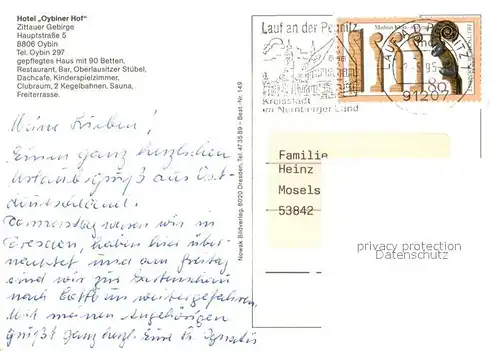 Hotel „Oybiner Hof"
Zittauer Gebirge
Hauptstraße 5
8806 Oybin
Tel. Oybin 297
gepflegtes Haus mit 90 Betten,
Restaurant, Bar, Oberlausitzer Stübel,
Dachcafe, Kinderspielzimmer,
Clubraum, 2 Kegelbahnen, Sauna,
Freiterrasse.
Meine Lieben!
Einen ganz herzlichen
Urlaubsgruß aus Ost-
deutschland.
Donnerstag waren wir in
Dresden, haben hier über-
nachtet und am Freitag
sind wir zur
nach weitergefahren.
Mit meinen Angehörigen
grüßt ganz herzl. Eure
Nowak Bildverlag, 8020 Dresden, Tel. 47 35 89 - Best.-Nr. 149
Lauf an der Pegnitz
Kreisstadt
im Nürnberger Land
LAUF A D PEGNITZ 1
95
91207
Familie
Heinz
Mosels
53842
privacy protection
Datenschutz